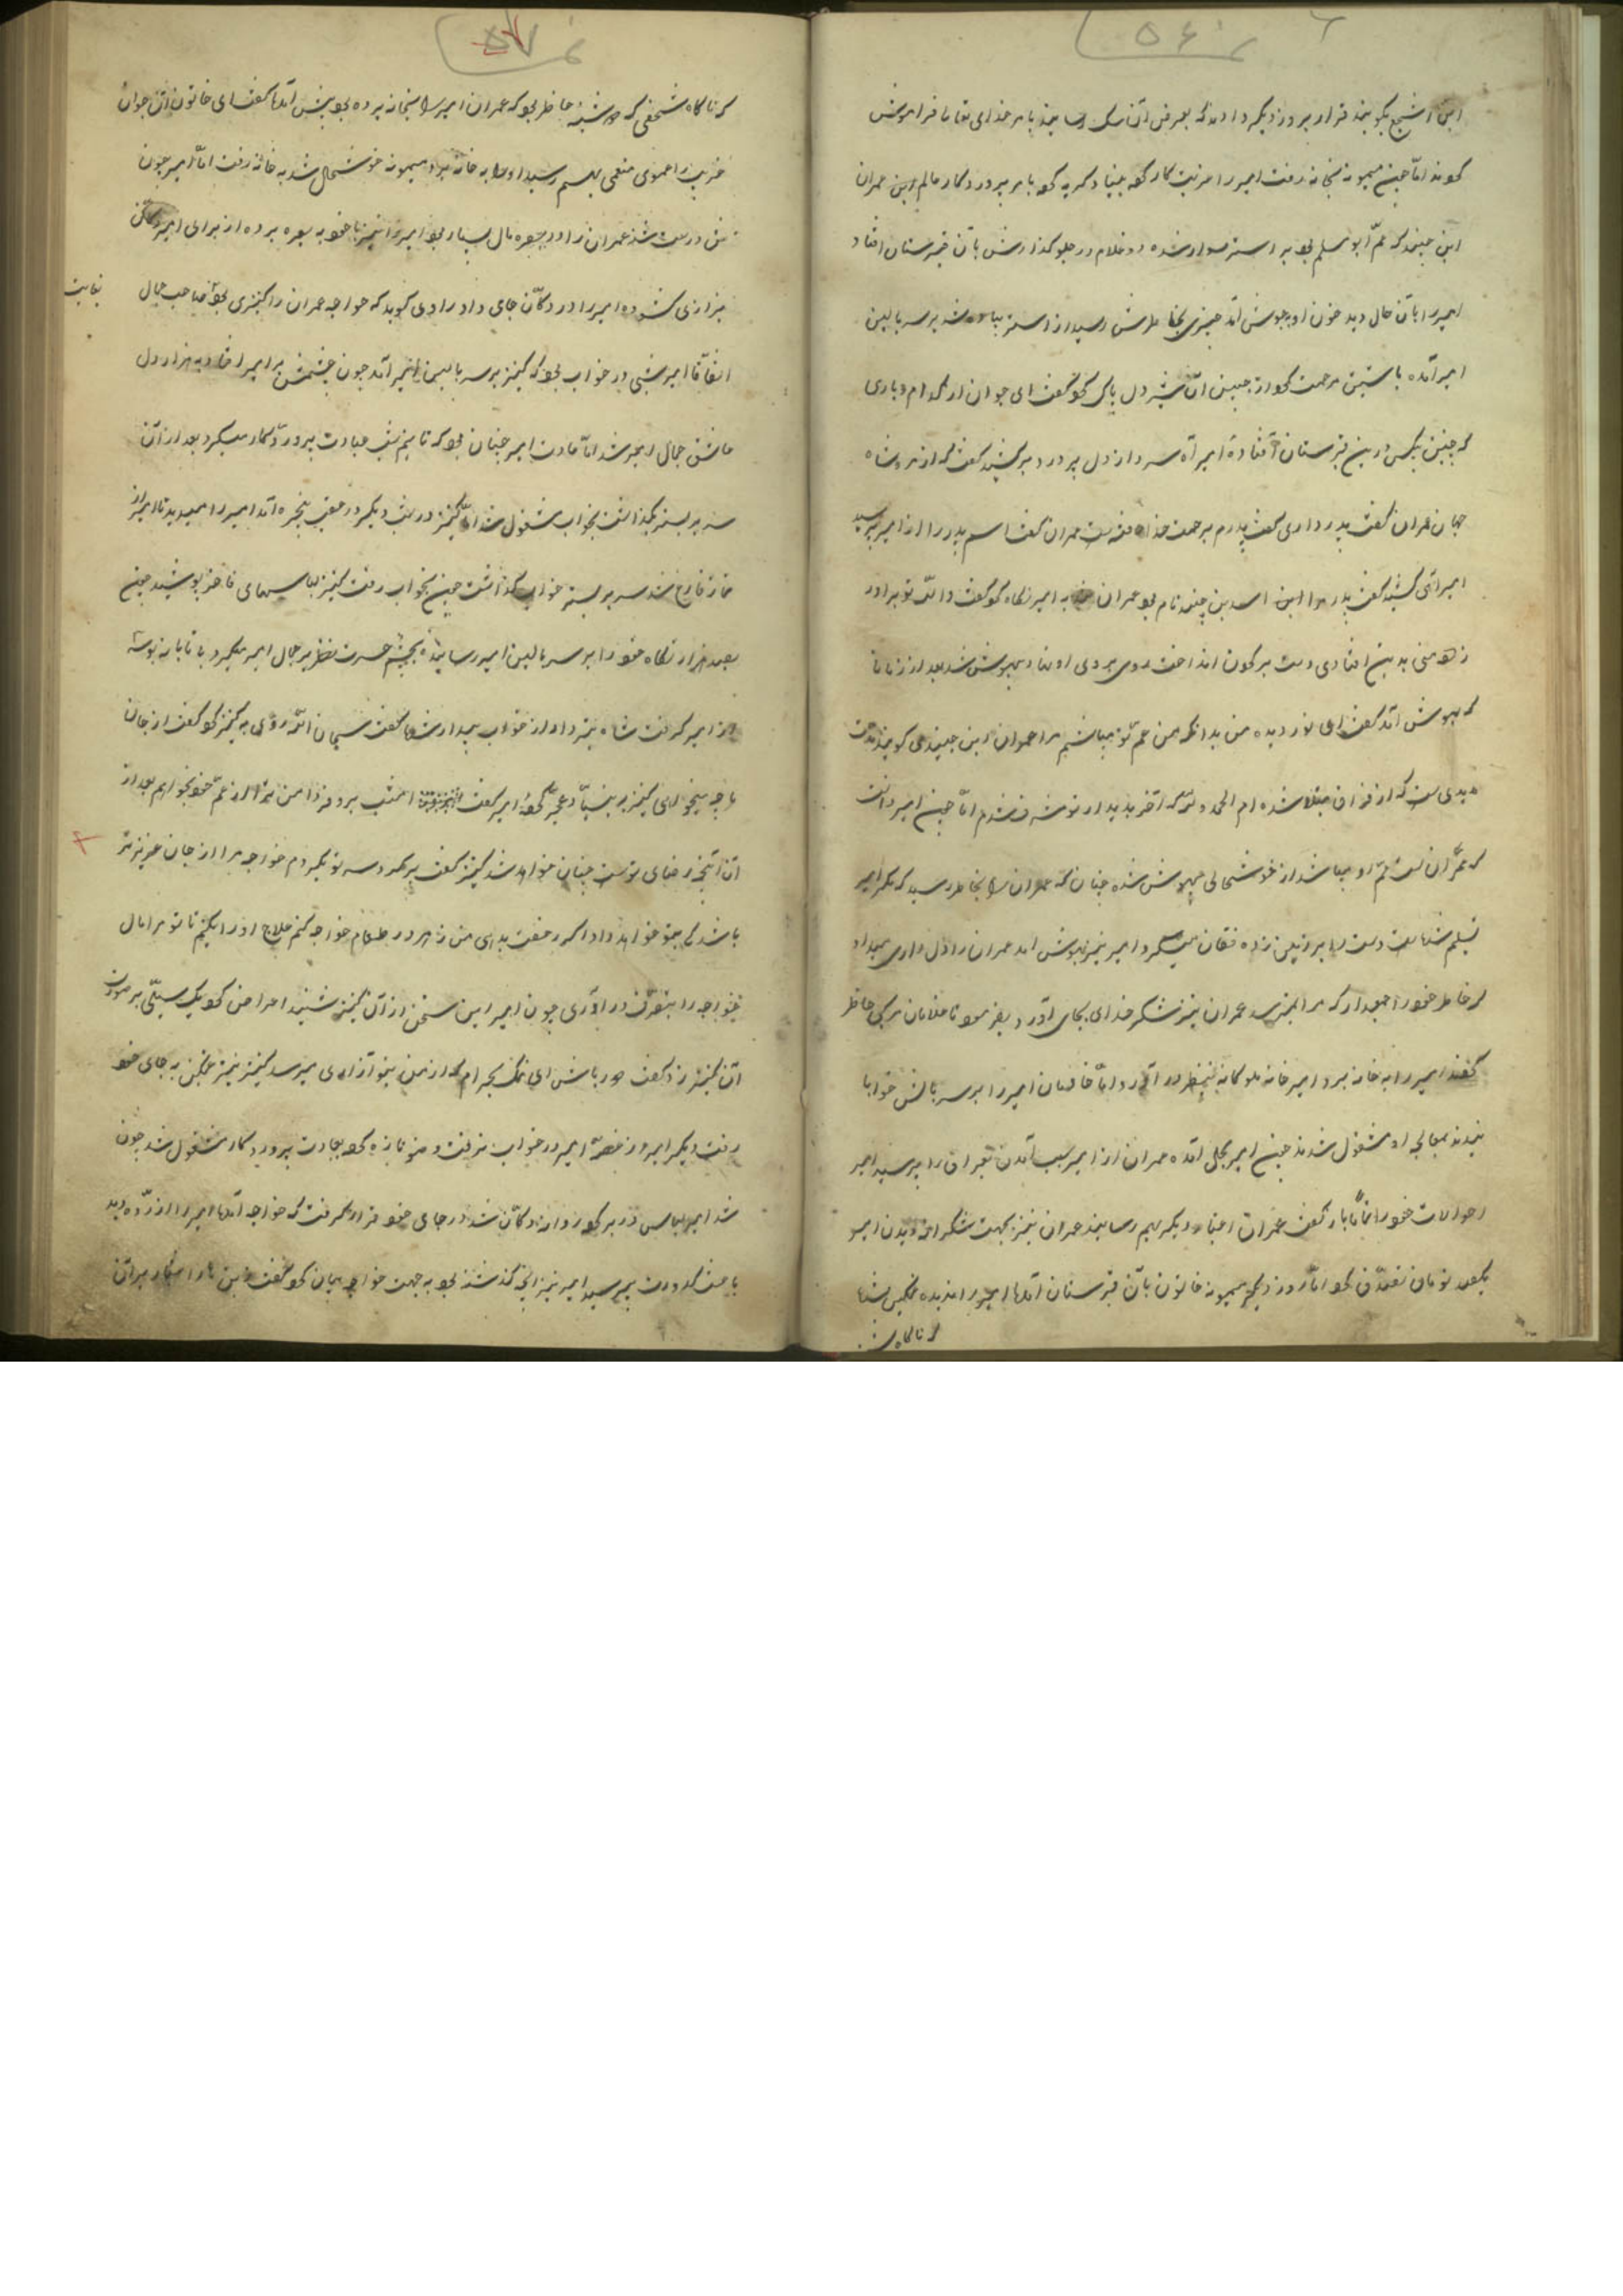 ۵۶
این اشجع بگویند قرار بروز دیگر دادند که بعرض آن سک رسانیند با مر خدای تعالی فراموش
کردند اما چون میمونه بخانه رفت امیر را مرتبت کار کرده بنیاد گریه کرد با مر پروردگار عالم این عمران
ابن جنید که عم ابو مسلم بود بر استر سوار شده دو غلام در جلو گذارش بآن قبرستان افتاد
امیر را بآن حال دید خون او بجوش آمد چیزی بخاطرش رسید از استر پیاده شد بر سر بالین
امیر آمده باستین مرحمت گرد از جبین آن شیر دل پاک کرد گفت ای جوان از کدام دیاری
که چنین بیکس درین قبرستان افتاده امیر آه سرد از دل پر درد برکشید گفت که از مرو شاه
جهان عمران گفت پدر داری گفت پدرم برحمت خدا رفته است عمران گفت اسم پدر را از امیر پرسید
امیر آهی کشید گفت پدر مرا ابن اسد بن جنید نام بود عمران به امیر نگاه کرد گفت والله تو برادر
زاده منی بدین افتادی دست بر گردن انداخت روی بروی او نهاد بیهوش شد بعد از زمانی
که بهوش آمد گفت ای نور دیده من بدانکه من عم تو میباشم مرا عمران ابن جنید می گویند مدت
مدیدی ست که از فراق مبتلا شده ام الحمد لله که آخر بدیدار تو مشرف شدم اما چون امیر دانست
که عمران است عم او میباشد از خوشحالی بیهوش شده چنان که عمران را بخاطر رسید که مگر امیر
تسلیم شد است دست را بر زمین زده فغان میکرد امیر نیز بهوش آمد عمران را دل داری میداد
که خاطر خود را جمع دار که مرا چیزی نرسد عمران نیز شکر خدای بجای آورد بفرمود تا غلامان مرکبی حاظر
کردند امیر را به خانه برد امیر خانه ملوکانه بنظر در آورد اما خادمان امیر را بر سر بالش خوابا
نیدند بمعالجه او مشغول شدند چون امیر بحال آمده عمران از امیر سبب آمدن بعراق را پرسید امیر
احوالات خود را تماماً باز گفت عمران دیگر بهم رسانید عمران نیز بجهت شکرانه دیدن امیر
یکصد تومان تصدق کرد اما روز دیگر میمونه خاتون بآن قبرستان آمد امیر را ندیده غمگین شد
که ناگاه
۵۷
که ناگاه شخصی که دوشینه حاظر بود که عمران امیر را بخانه برده بود پیش آمد گفت ای خاتون آن جوان
غریب را عموی منعمی بهم رسید او را به خانه برد میمونه خوشحال شد به خانه رفت اما امیر چون
تن درست شد عمران را در بصره مال بسیار بود امیر را نیز با خود به بصره برده از برای امیر دکان
بزازی گشوده امیر را در دکان جای داد راوی گوید که خواجه عمران را کنیزی بود صاحب جمال بغایت
اتفاقا امیر شبی در خواب بود که کنیز بر سر بالین امیر آمد چون چشمش بر امیر افتاد به هزار دل
عاشق جمال امیر شد اما عادت امیر چنان بود که تا نیم شب عبادت پروردگار میکرد بعد از آن
سر بر بستر گذاشت بخواب مشغول شد اما کنیز در شب دیگر در عقب پنجره آمد امیر را میدید تا امیر از
نماز فارغ شد سر بر بستر خواب گذاشت چون بخواب رفت کنیز لباسهای فاخر پوشید چون
بصد هزار نگاه خود را بر سر بالین امیر رسانیده بچشم حسرت نظر بر جمال امیر میکرد بی تابانه بوسه
از امیر گرفت شاه نیزدار از خواب بیدار شد گفت سبحان الله روی به کنیز کرد گفت از جان
ما چه میخواهی کنیز بنیاد عجز کرد امیر گفت امشب برو فردا من ترا از عم خود بخواهم بعد از
آن آنچه رضای توست چنان خواهد شد کنیز گفت بگرد سر تو بگردم خواجه مرا از جان عزیزتر
باشد کی بتو خواهد داد اگر رخصت بدهی من زهر در طعام خواجه کنم علاج او را بکنم تا تو مرا مال
خواجه را بتصرف در آری چون امیر این سخن از آن کنیز شنید اعراض کرد یک سیلی بر صورت
آن کنیز زد گفت دور باش ای نمک بحرام که از من بتو آزاری میرسد کنیز نیز غمگین به جای خود
رفت دیگر امیر از غصه امیر در خواب نرفت وضو تازه کرد بعبادت پروردگار مشغول شد چون
شد امیر لباس در بر کرد روانه دکان شد در جای خود قرار گرفت که خواجه آمد امیر را آزرده دید
باعث کدورت پرسید امیر نیز آنچه گذشته بود به جهت خواجه بیان کرد گفت